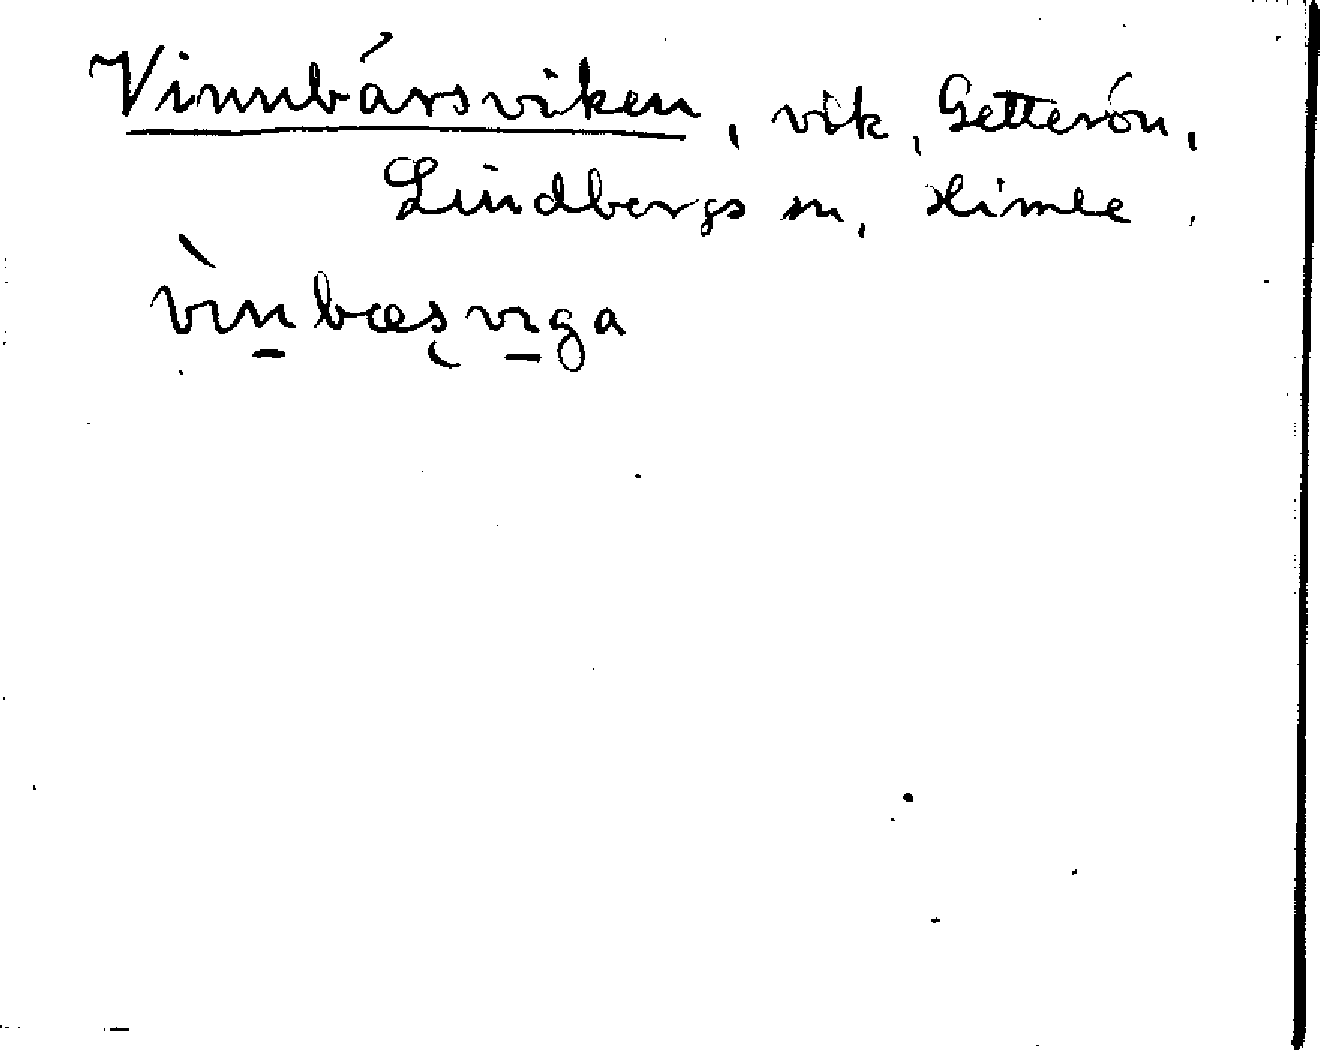 Vinnbärsviken, vik, Getterön,
Lindbergs sn, Himle.
vìnbæsviga